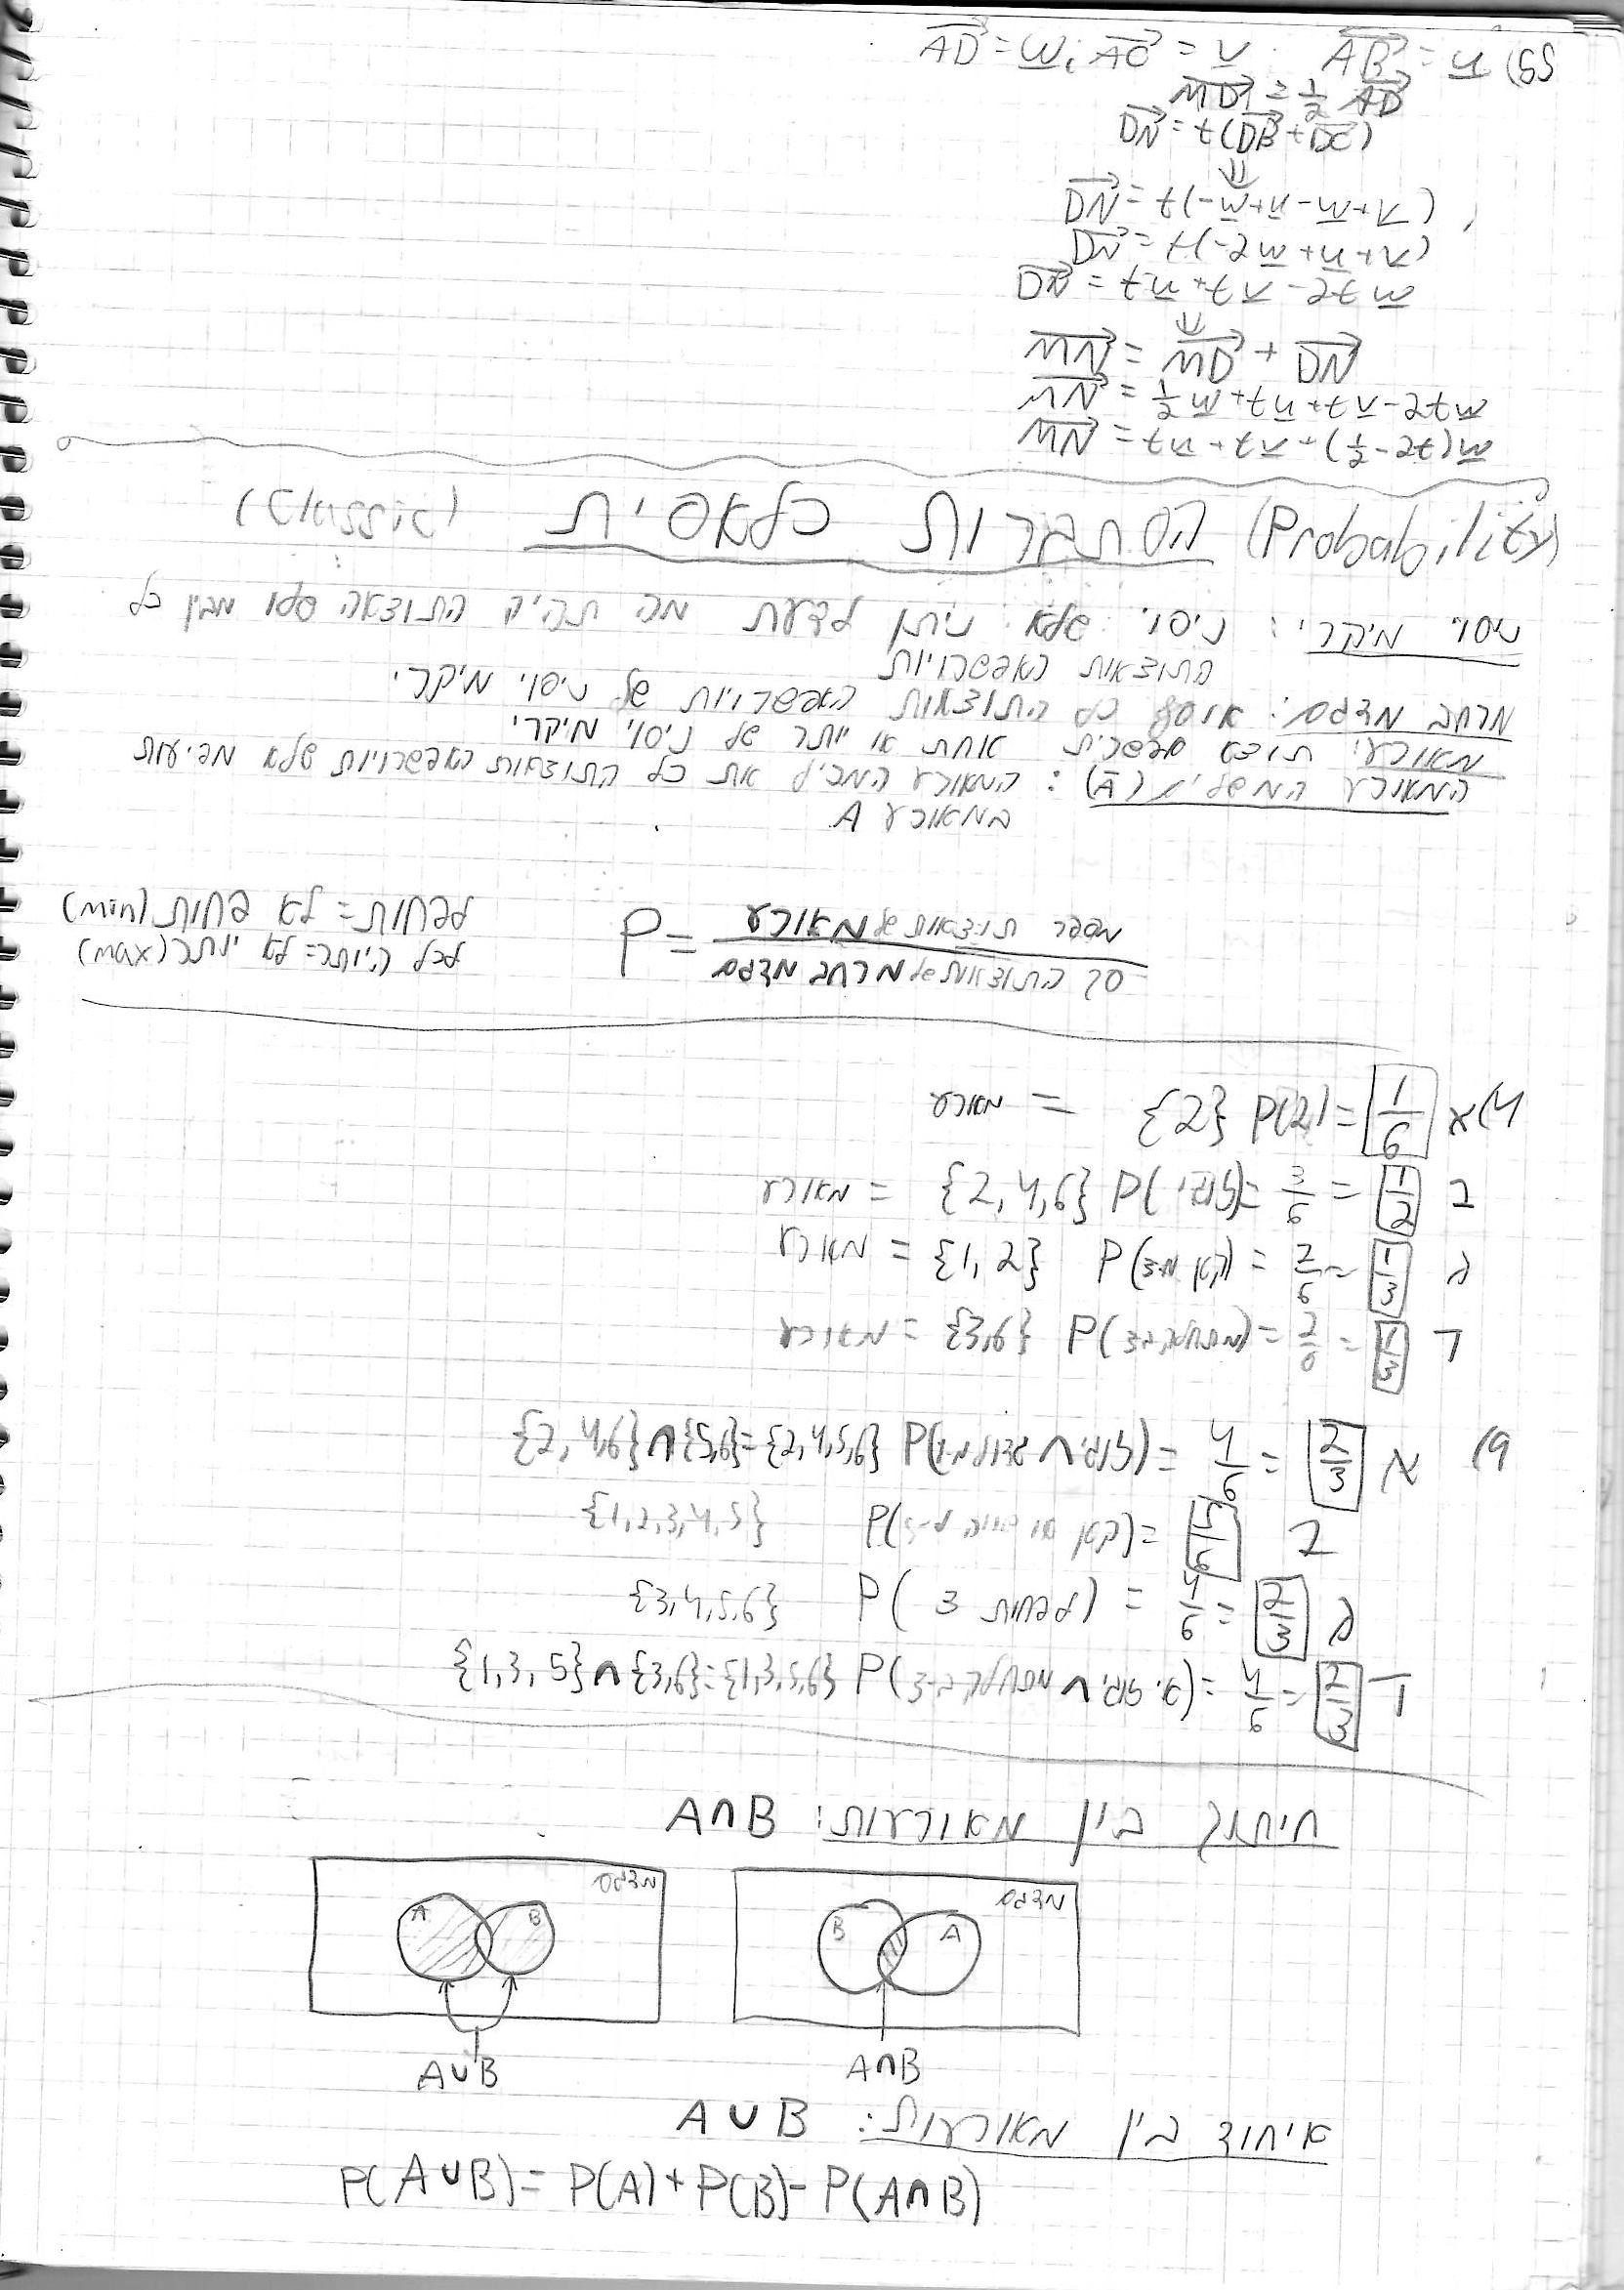 55) $\overrightarrow{AB} = \underline{u}$ . $\overrightarrow{AC} = \underline{v}$ ; $\overrightarrow{AD} = \underline{w}$
$\overrightarrow{MD} = \frac{1}{2} \overrightarrow{AD}$
$\overrightarrow{DN} = t(\overrightarrow{DB} + \overrightarrow{DC})$
⇓
$\overrightarrow{DN} = t(-\underline{w} + \underline{u} - \underline{w} + \underline{v})$
$\overrightarrow{DN} = t(-2\underline{w} + \underline{u} + \underline{v})$
$\overrightarrow{DN} = t\underline{u} + t\underline{v} - 2t\underline{w}$
⇓
$\overrightarrow{MN} = \overrightarrow{MD} + \overrightarrow{DN}$
$\overrightarrow{MN} = \frac{1}{2}\underline{w} + t\underline{u} + t\underline{v} - 2t\underline{w}$
$\overrightarrow{MN} = t\underline{u} + t\underline{v} + (\frac{1}{2} - 2t)\underline{w}$
(Probability) הסתברות כלאסית (Classic)
ניסוי מיקרי: ניסוי שלא ניתן לדעת מה תהיה התוצאה שלו מבין כל
התוצאות האפשרויות
מרחב מדגם: אוסף כל התוצאות האפשרויות של ניסוי מיקרי.
מאורע: תוצא אפשרית אחת או יותר של ניסוי מיקרי
המאורע המשלים (Ā): המאורע המכיל את כל התוצאות האפשרויות שלא מפיעות
במאורע A
P = מספר תוצאות של מאורע / סך התוצאות של מרחב מדגם
לפחות = לא פחות (min)
לכל היותר = לא יותר (max)
4) א P(2) = 1/6 {2} = מאורע
ב מאורע = {2,4,6} P(זוגי) = 3/6 = 1/2
ג מאורע = {1,2} P(קטן מ-3) = 2/6 = 1/3
ד מאורע = {3,6} P(מתחלק ב-3) = 2/6 = 1/3
9) א {2,4,6}∩{5,6}={2,4,5,6} P(זוגי ∩ גדול מ-4) = 4/6 = 2/3
ב {1,2,3,4,5} P(קטן או שווה ל-5) = 5/6
ג {3,4,5,6} P(לפחות 3) = 4/6 = 2/3
ד {1,3,5}∩{3,6}={1,3,5,6} P(אי זוגי ∩ מתחלק ב-3) = 4/6 = 2/3
חיתוך בין מאורעות: A∩B
מדגם
B A
A∩B
מדגם
A B
A∪B
איחוד בין מאורעות: A∪B
P(A∪B) = P(A) + P(B) - P(A∩B)